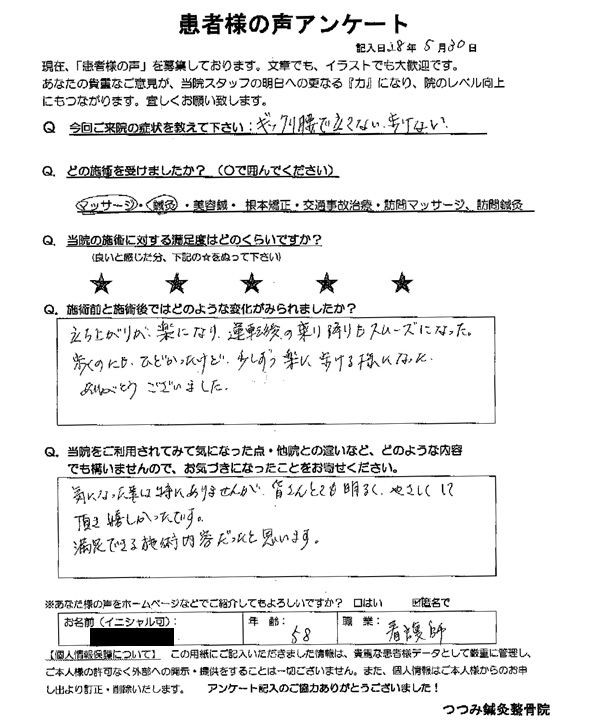 患者様の声アンケート
記入日28年5月30日
現在、「患者様の声」を募集しております。文章でも、イラストでも大歓迎です。
あなたの貴重なご意見が、当院スタッフの明日への更なる『力』になり、院のレベル向上
にもつながります。宜しくお願い致します。
Q 今回ご来院の症状を教えて下さい:ギックリ腰で立てない 歩けない
Q. どの施術を受けましたか？（〇で囲んでください）
マッサージ・鍼灸・美容鍼・根本矯正・交通事故治療・訪問マッサージ、訪問鍼灸
Q. 当院の施術に対する満足度はどのくらいですか？
(良いと感じた分、下記の☆をぬって下さい)
★ ★ ★ ★ ★
Q. 施術前と施術後ではどのような変化がみられましたか？
立ち上がりが、楽になり、運転後の乗り降りもスムーズになった。
歩くのにも、ひどかったけど、少しずつ楽に歩ける様になった。
ありがとうございました。
Q. 当院をご利用されてみて気になった点・他院との違いなど、どのような内容
でも構いませんので、お気づきになったことをお寄せください。
気になった事は特にありませんが、皆さんとても明るく、やさしくして
頂き嬉しかったです。
満足できる施術内容だったと思います。
※あなた様の声をホームページなどでご紹介してもよろしいですか？ □はい ☑匿名で
お名前(イニシャル可): 年齢: 58 職業: 看護師
【個人情報保護について】 この用紙にご記入いただきました情報は、貴重な患者様データとして厳重に管理し、
ご本人様の許可なく外部への開示・提供をすることは一切ございません。また、個人情報はご本人様からのお申
し出より訂正・削除いたします。 アンケート記入のご協力ありがとうございました！
つつみ鍼灸整骨院